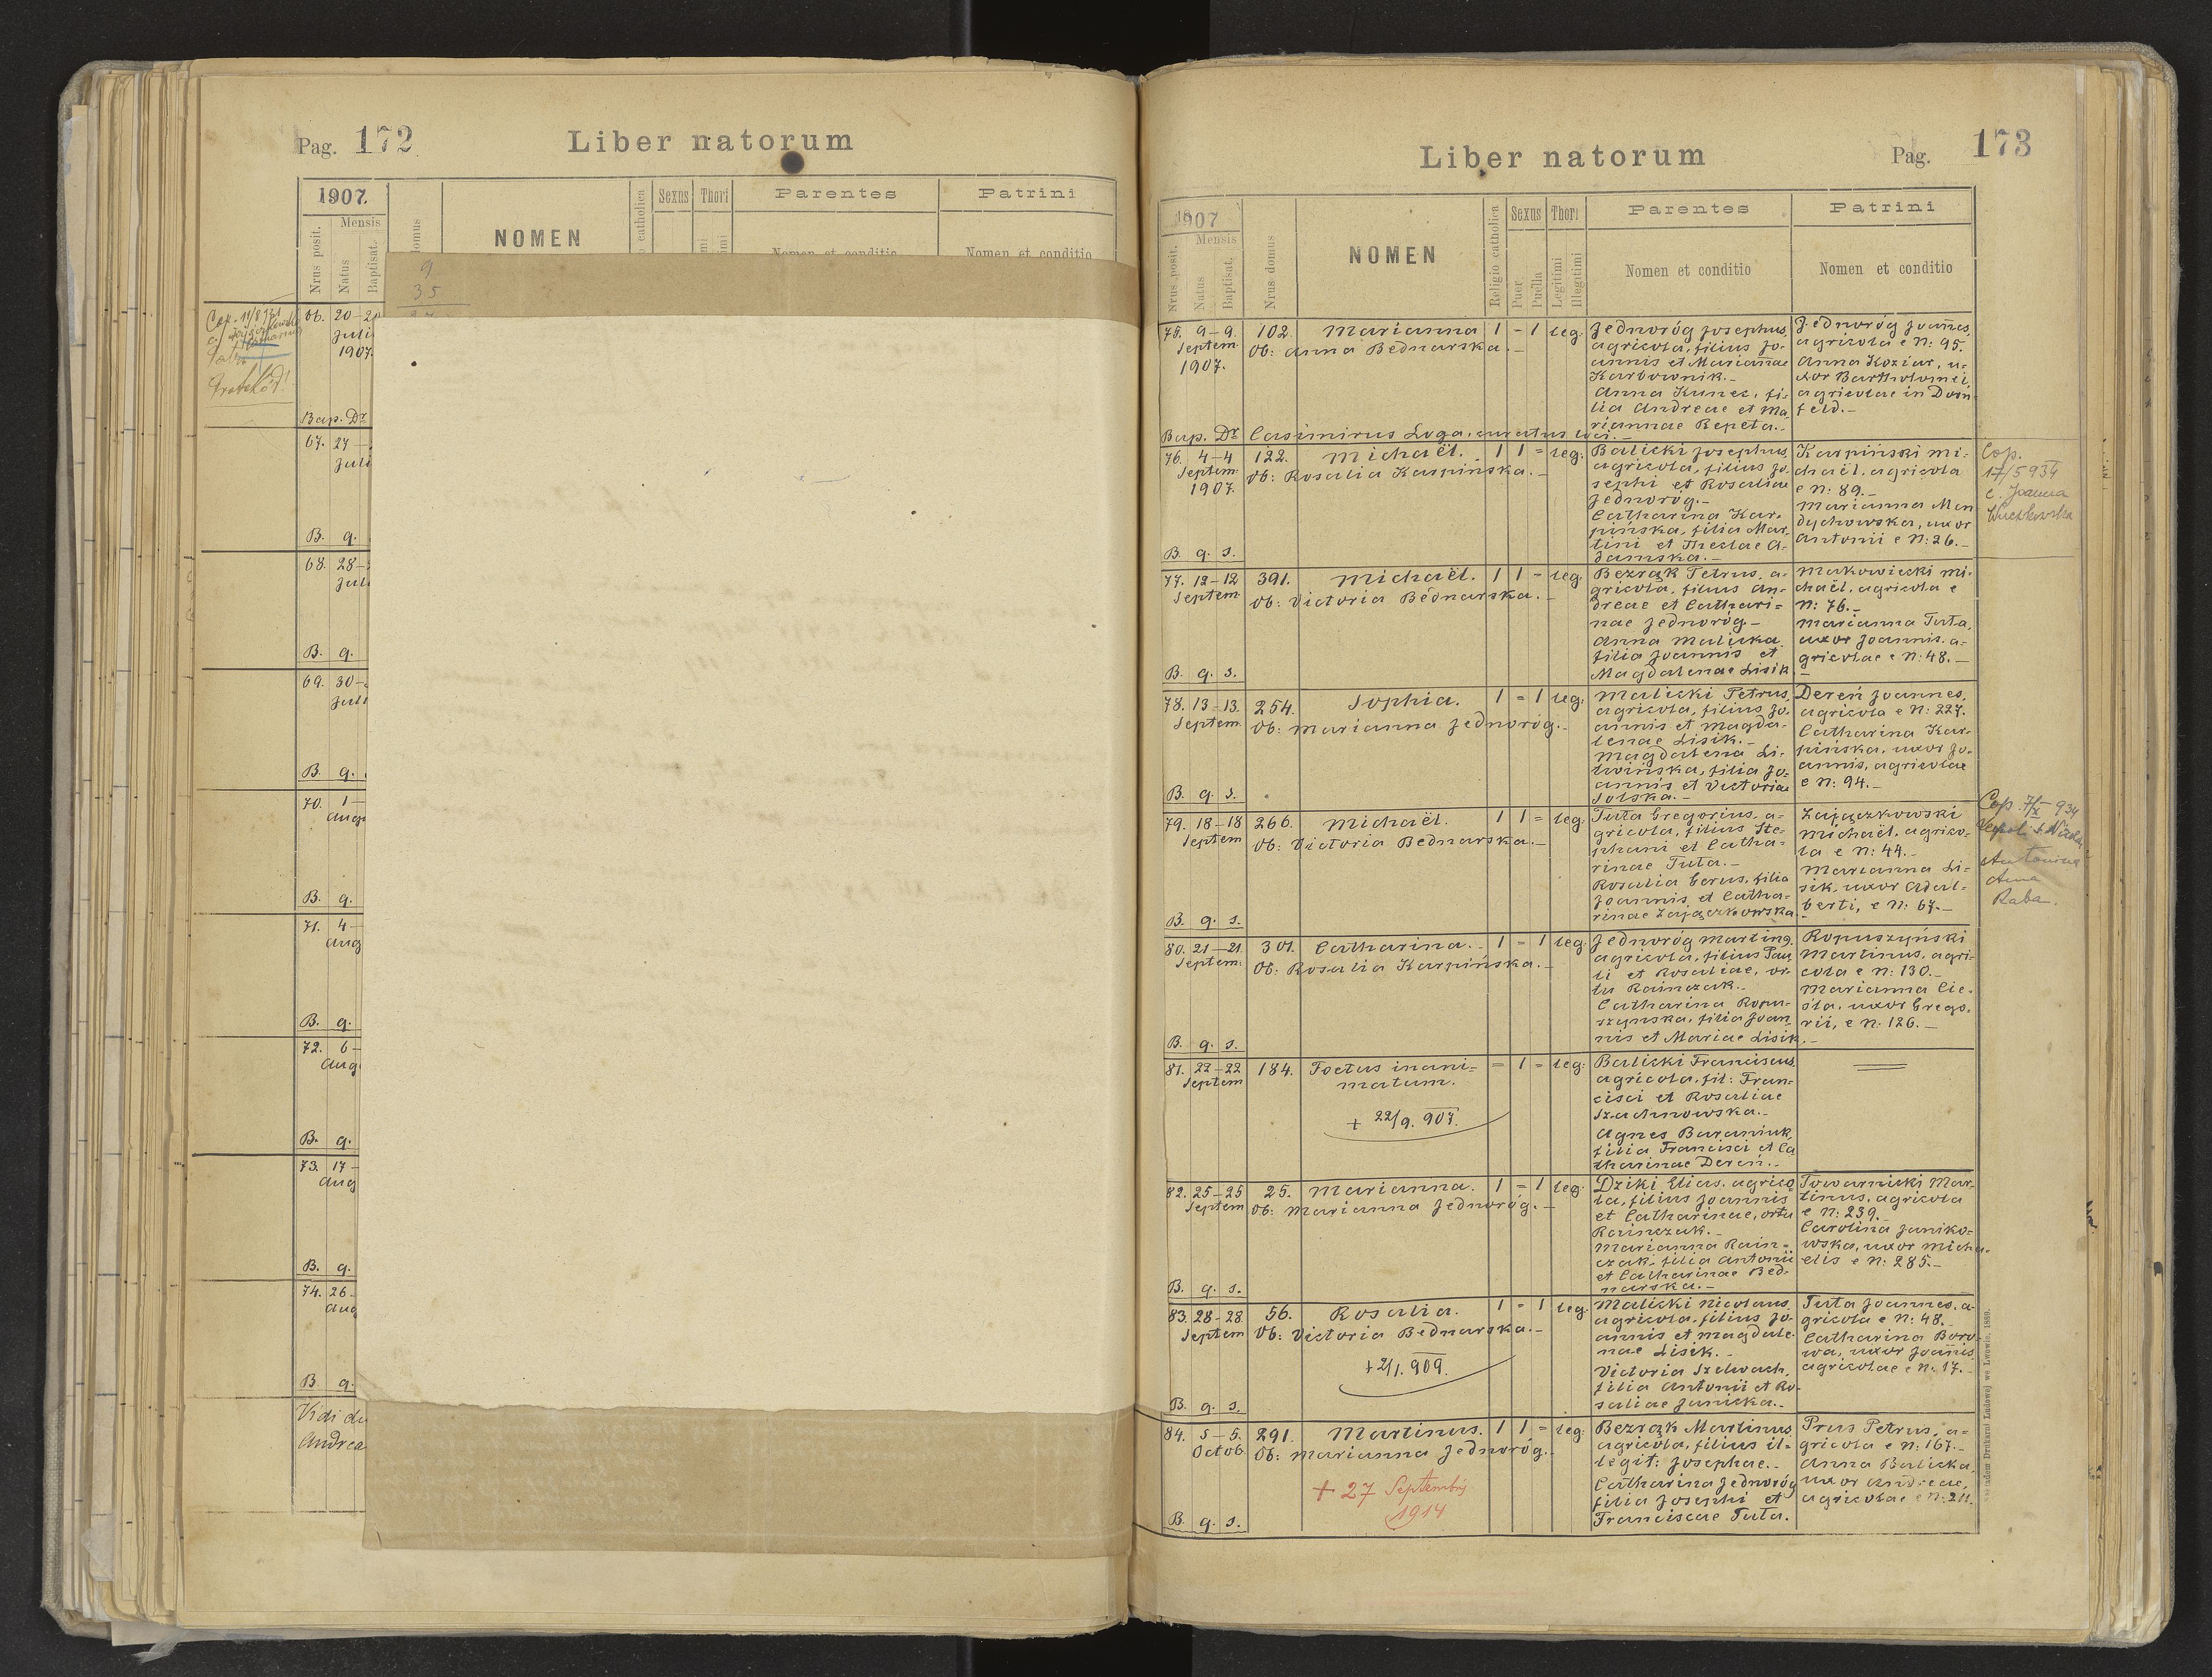 Pag. 172
Liber natorum
1907.
Mensis
Nrus posit.
Natus
Baptisat.
NOMEN
Sexus
Thori
Parentes
Patrini
Nomen et conditio
Nomen et conditio
9
35
66. 20-
Juli
1907.
Bap. Dr
67. 27-
Juli
B. q.
68. 28-
Juli
B. q.
69. 30-
Juli
B. q.
70. 1-
Aug
B. q.
71. 4-
Aug
B. q.
72. 6-
Aug
B. q.
73. 17-
Aug
B. q.
74. 26-
Aug
B. q.
Vidi
Andrea
Liber natorum
Pag. 173
1907
Mensis
Nrus posit.
Natus
Baptisat.
Nrus domus
NOMEN
Religio catholica
Sexus
Puer
Puella
Thori
Legitimi
Illegitimi
Parentes
Nomen et conditio
Patrini
Nomen et conditio
75. 9-9. 102. Marianna 1 - 1 leg.
Septem. Ob: Anna Bednarska.-
1907.
Jednoróg Josephus,
agricola, filius Jo-
annis et Mariannae
Karbownik.-
Anna Kunec, fi-
lia Andreae et Ma-
riannae Repeta.-
Jednoróg Joannes,
agricola e N: 95.
Anna Koziar, u-
xor Bartholomei,
agricolae in Dorn-
feld.-
Bap. Dr Casimirus Loga, curatus loci.-
76. 4-4 122. Michaël. 1 1 = leg.
Septem. Ob: Rosalia Karpińska.-
1907.
Balicki Josephus,
agricola, filius Jo-
sephi et Rosaliae
Jednoróg.-
Catharina Kar-
pińska, filia Mar-
tini et Theclae A-
damska.-
Karpiński Mi-
chaël, agricola
e N: 89.-
Marianna Man
dychowska, uxor
Antonii e N: 26.-
B. q. s.
Cop.
17/5 934
c. Joanna
77. 12-12 391. Michaël. 1 1 - leg.
Septem. Ob: Victoria Bednarska.-
Bezrąk Petrus, a-
gricola, filius An-
dreae et Cathari-
nae Jednoróg.-
Anna Malicka
filia Joannis et
Magdalenae Lisik
Makowiecki Mi-
chaël, agricola e
N: 76.-
Marianna Tuta,
uxor Joannis, a-
gricolae e N: 48.-
B. q. s.
78. 13-13. 254. Sophia. 1 = 1 leg.
Septem. Ob: Marianna Jednoróg.-
Malicki Petrus,
agricola, filius Jo-
annis et Magda-
lenae Lisik.-
Magdalena Li-
twińska, filia Jo-
annis et Victoriae
Solska.-
Dereń Joannes,
agricola e N: 227.
Catharina Kar-
pińska, uxor Jo-
annis, agricolae
e N: 94.-
B. q. s.
79. 18-18 266. Michaël. 1 1 = leg.
Septem Ob: Victoria Bednarska.-
Tuta Gregorius, a-
gricola, filius Ste-
phani et Catha-
rinae Tuta.-
Rosalia Gerus, filia
Joannis et Catha-
rinae Zajączkowska
Zajączkowski
Michaël, agrico-
la e N: 44.-
Marianna Li-
sik, uxor Adal-
berti, e N: 67.-
B. q. s.
Cop. 7/X 934
Antonina
Anna
Raba.
80. 21-21. 301. Catharina.- 1 - 1 leg.
Septem. Ob: Rosalia Karpińska.-
Jednoróg Martinus,
agricola, filius Pau
li et Rosaliae, or-
tu Rainczak.-
Catharina Ropu-
szyńska, filia Joan
nis et Mariae Lisik.-
Ropuszyński
Martinus, agri-
cola e N: 130.-
Marianna Cie-
sla, uxor Grego-
rii, e N: 126.-
B. q. s.
81. 22-22 184. Foetus inani- = 1 = leg.
Septem matum.
+ 22/9. 907.
Balicki Franciscus
agricola, fil: Fran-
cisci et Rosaliae
Szachnowska.-
Agnes Baraniuk,
filia Francisci et Ca
tharinae Dereń.-
82. 25-25 25. Marianna. 1 = 1 leg.
Septem Ob: Marianna Jednoróg.-
Dziki Elias, agrico
la, filius Joannis
et Catharinae, ortu
Rainczak.-
Marianna Rain-
czak, filia Antonii
et Catharinae Bed-
narska.-
Towarnicki Mar-
tinus, agricola
e N: 239.-
Carolina Janiko-
wska, uxor Micha-
elis e N: 285.-
B. q. s.
83. 28-28. 56. Rosalia. 1 - 1 leg.
Septem Ob: Victoria Bednarska.-
+ 2/1. 909.
Malicki Nicolaus,
agricola, filius Jo-
annis et Magdale-
nae Lisik.-
Victoria Szelwach,
filia Antonii et Ro-
saliae Janicka.-
Tuta Joannes, a-
gricola e N: 48.-
Catharina Boro-
wa, uxor Joannis,
agricolae e N: 17.-
B. q. s.
84. 5-5. 291. Martinus. 1 1 - leg.
Octob. Ob: Marianna Jednoróg.-
+ 27 Septembris
1914
Bezrąk Martinus,
agricola, filius il-
legit: Josephae.-
Catharina Jednoróg
filia Josephi et
Franciscae Tuta.
Prus Petrus, a-
gricola e N: 167.-
Anna Balicka,
uxor Andreae,
agricolae e N: 211.
B. q. s.
Drukarni Ludowej we Lwowie. 1899.